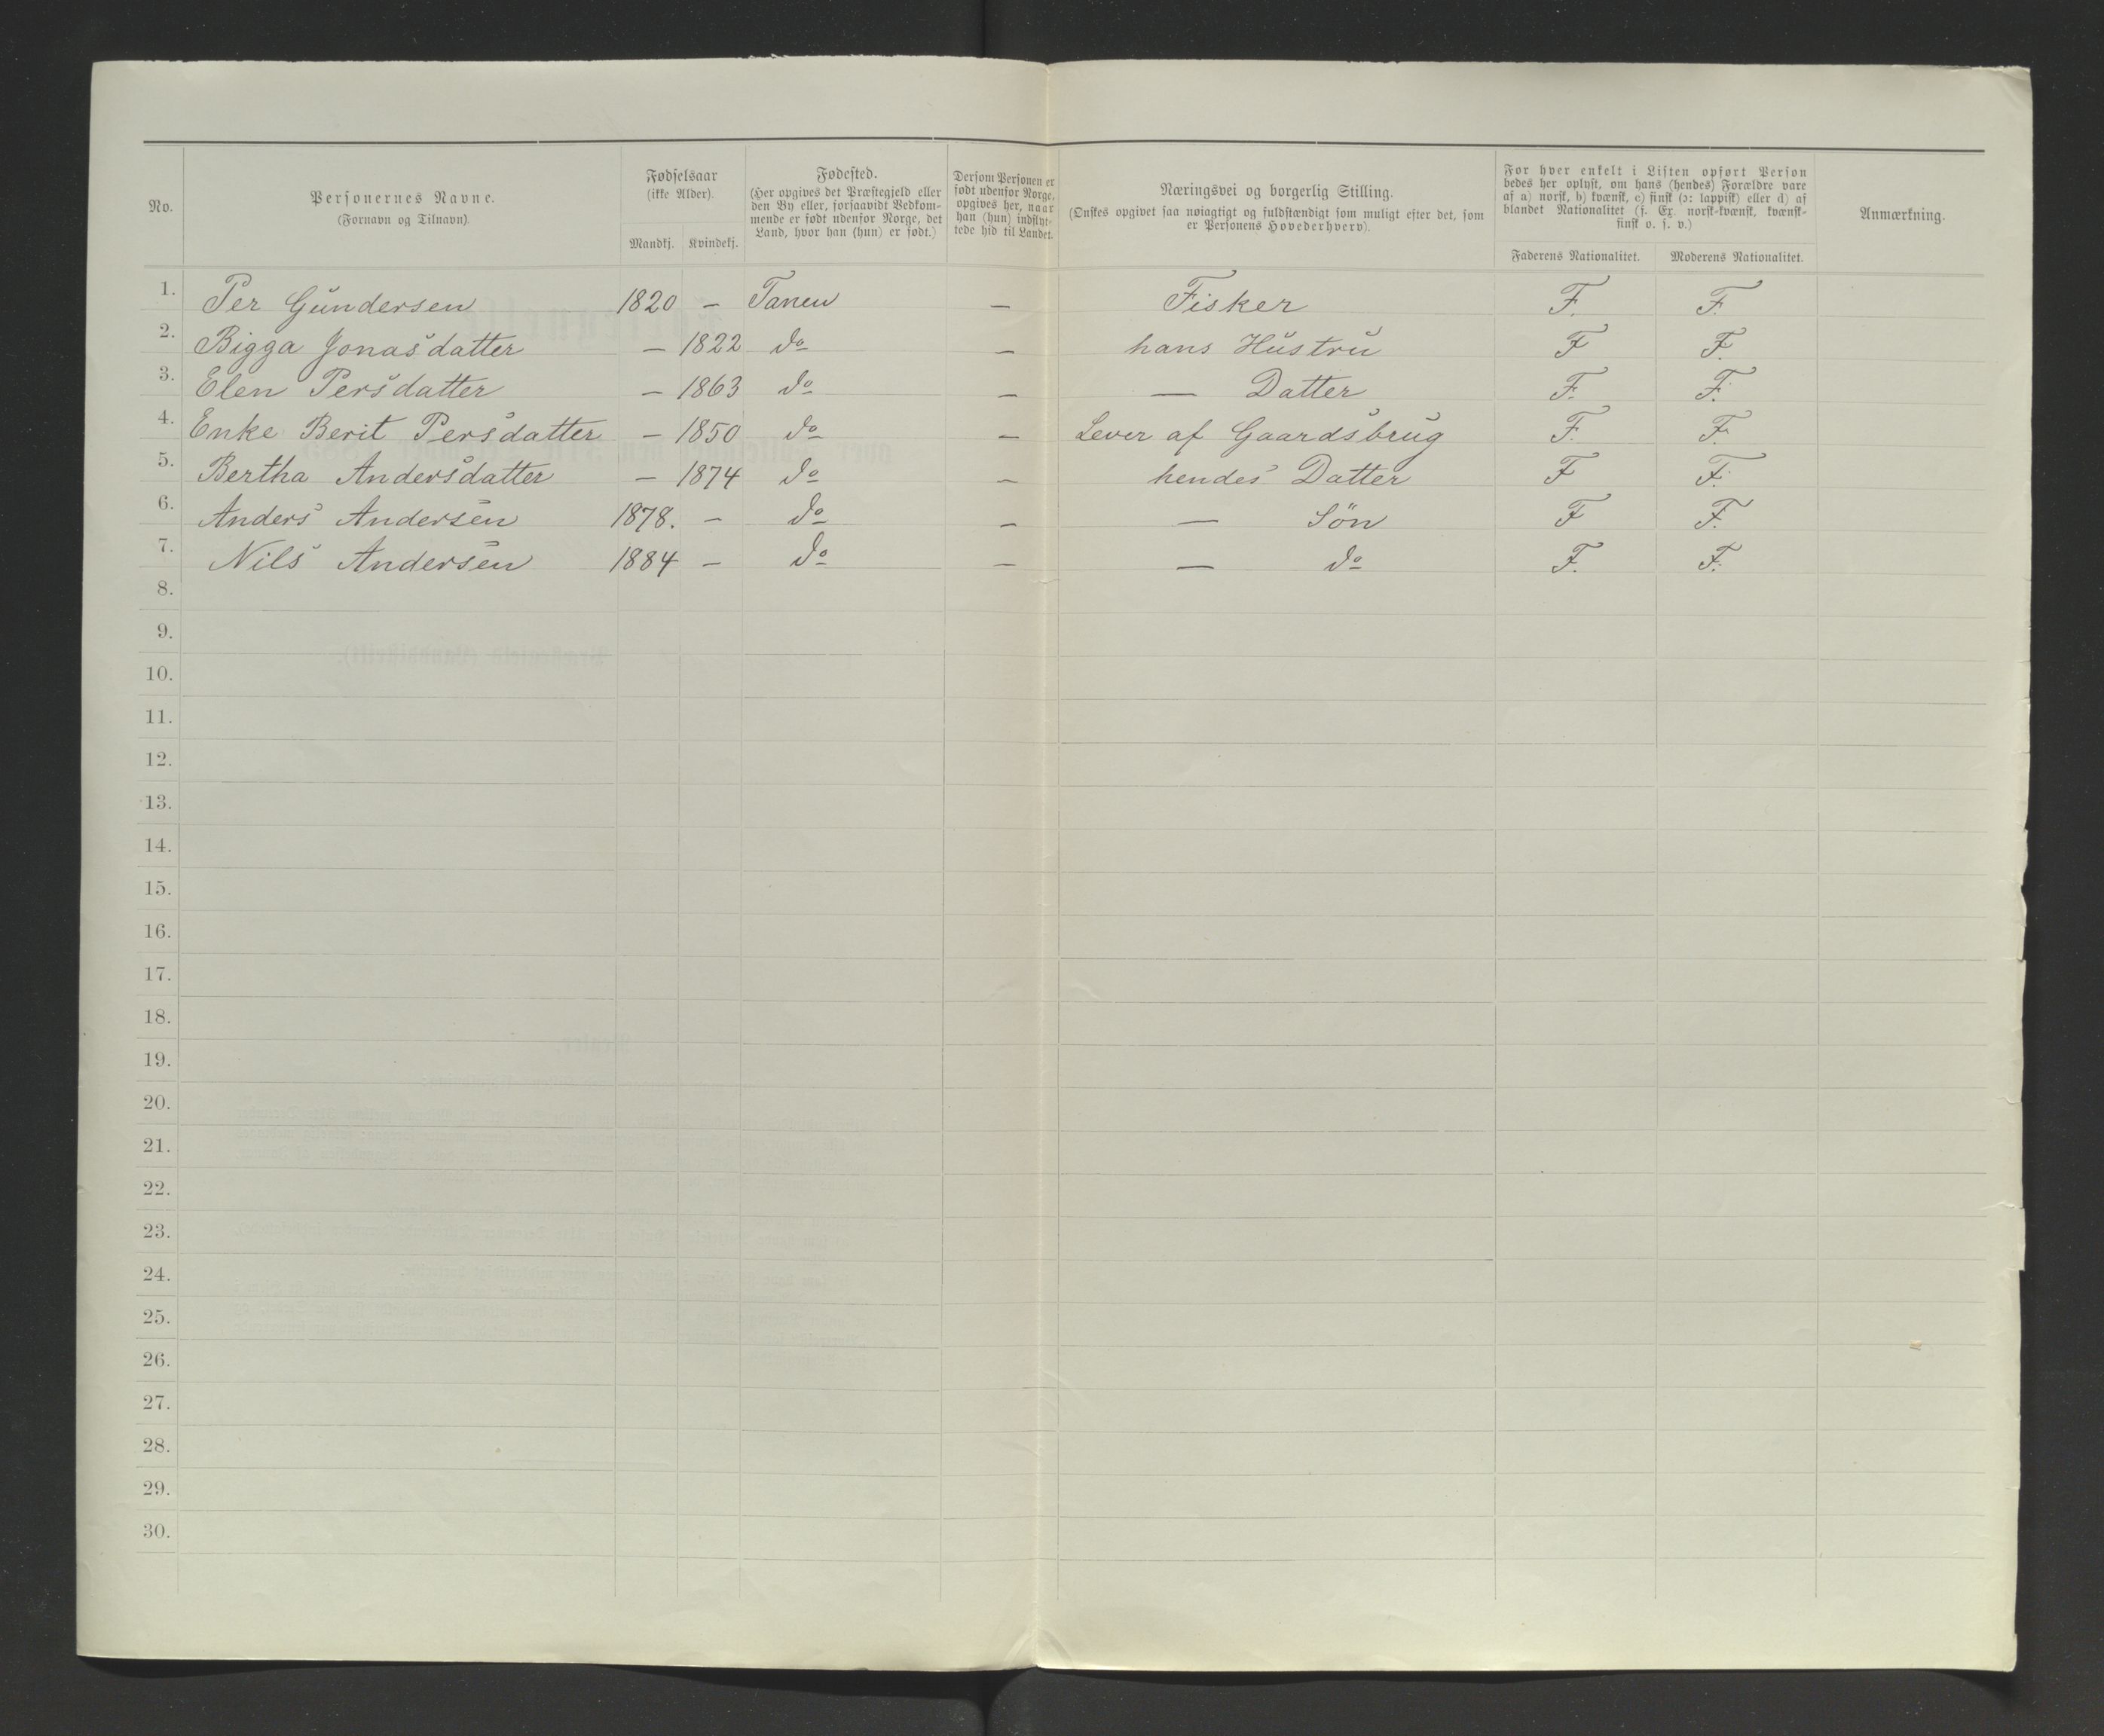 No.
Personernes Navne.
(Fornavn og Tilnavn).
Fødselsaar
(ikke Alder).
Mandkj. Kvindekj.
Fødested.
(Her opgives det Præstegjeld eller
den By eller, forsaavidt Vedkom-
mende er født udenfor Norge, det
Land, hvor han (hun) er født.)
Dersom Personen er
født udenfor Norge,
opgives her, naar
han (hun) indflyt-
tede hid til Landet.
Næringsvei og borgerlig Stilling.
(Ønskes opgivet saa nøiagtigt og fuldstændigt som muligt efter det, som
er Personens Hovederhverv).
For hver enkelt i Listen opført Person
bedes her oplyst, om hans (hendes) Forældre vare
af a) norsk, b) kvænsk, c) finsk (ɔ: lappisk) eller d) af
blandet Nationalitet (f. Ex. norsk-kvænsk, kvænsk-
finsk o. s. v.)
Faderens Nationalitet. Moderens Nationalitet.
Anmærkning.
1. Per Gundersen 1820 – Tanen – Fisker F. F.
2. Bigga Jonasdatter – 1822 do – hans Hustru F F.
3. Elen Persdatter – 1863 do – — Datter F. F.
4. Enke Berit Persdatter – 1850 do – Lever af Gaardsbrug F. F.
5. Bertha Andersdatter – 1874 do – hendes Datter F F.
6. Anders Andersen 1878. – do – — Sön F F.
7. Nils Andersen 1884 – do – — do F. F.
8.
9.
10.
11.
12.
13.
14.
15.
16.
17.
18.
19.
20.
21.
22.
23.
24.
25.
26.
27.
28.
29.
30.